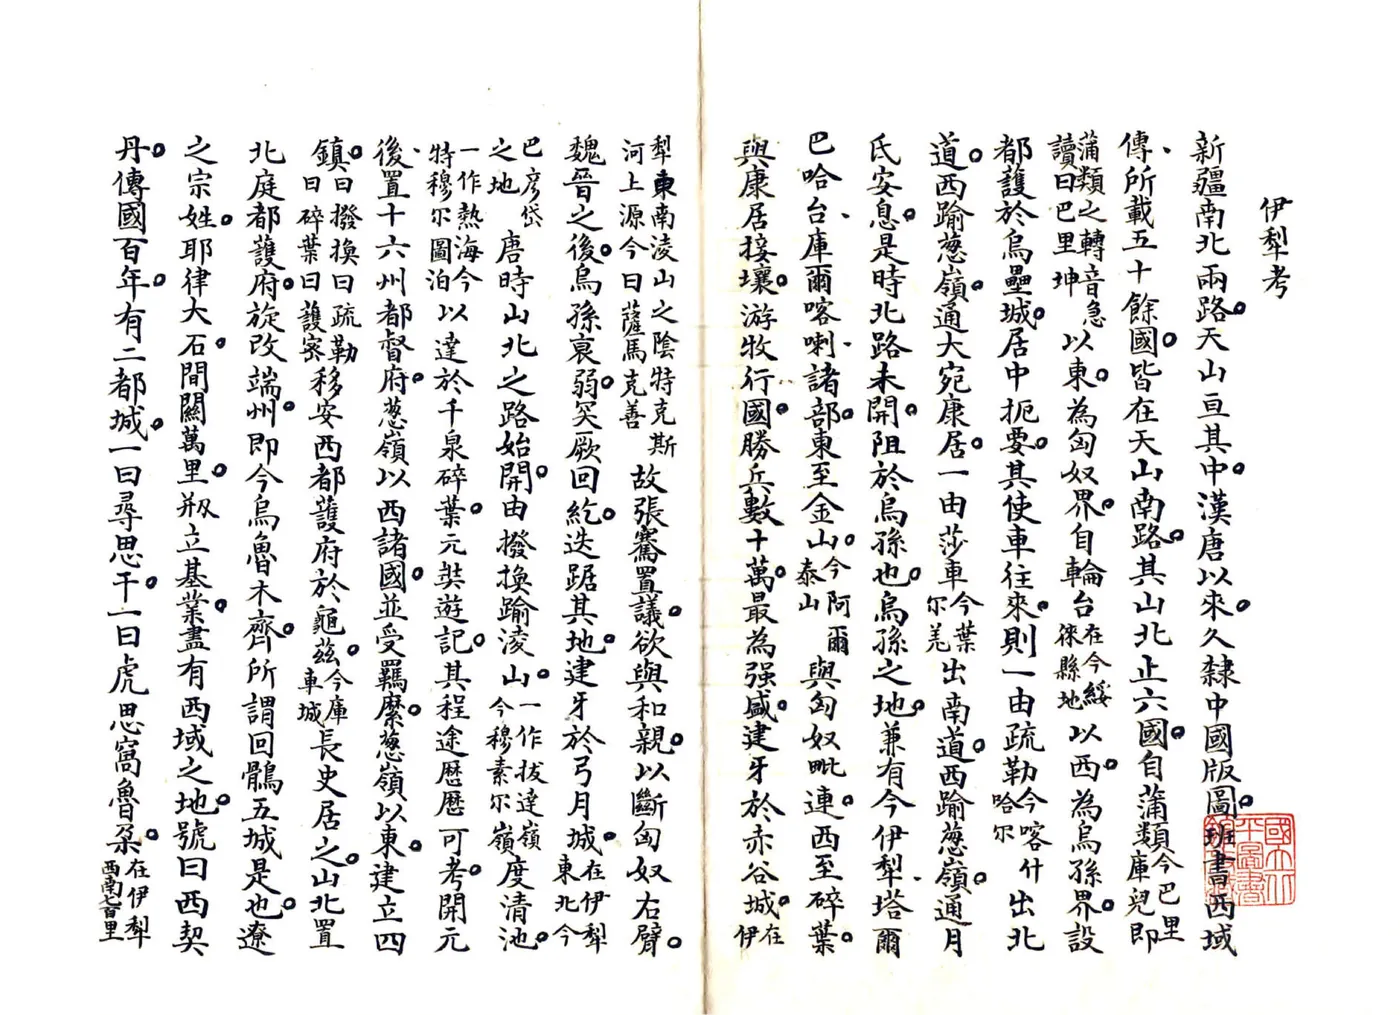 伊犁考
新疆南北兩路。天山亘其中。漢唐以來。久隸中國版圖。班書西域
傳、所載五十餘國。皆在天山南路。其山北止六國。自蒲類今巴里庫兒即
蒲類之轉音急讀曰巴里坤以東。為匈奴界。自輪台在今綏徠縣地以西。為烏孫界。設
都護於烏壘城。居中扼要。其使車往來。則一由疏勒今喀什哈尔出北
道。西踰葱嶺。通大宛康居。一由莎車今葉尔羌出南道。西踰葱嶺。通月
氏安息。是時北路未開。阻於烏孫也。烏孫之地。兼有今伊犁、塔爾
巴哈台、庫爾喀喇、諸部。東至金山。今阿爾泰山與匈奴毗連。西至碎葉。
與康居接壤。游牧行國。勝兵數十萬。最為强盛。建牙於赤谷城。在伊
犁東南淩山之陰特克斯河上源今曰薩馬克善故張騫置議。欲與和親。以斷匈奴右臂。
魏晉之後。烏孫衰弱。突厥回紇。迭踞其地。建牙於弓月城。在伊犁東北今
巴彥岱之地唐時山北之路始開。由撥換踰淩山。一作拔達嶺今穆素尔嶺度清池。
一作熱海今特穆尔圖泊以達於千泉碎葉。元奘遊記。其程途歷歷可考。開元
後、置十六州都督府。葱嶺以西諸國。並受羈縻。葱嶺以東。建立四
鎮。曰撥換曰疏勒曰碎葉曰護密移安西都護府於龜茲。今庫車城長史居之。山北置
北庭都護府。旋改端州。即今烏魯木齊。所謂回鶻五城是也。遼
之宗姓。耶律大石。間關萬里。剏立基業。盡有西域之地。號曰西契
丹。傳國百年。有二都城。一曰尋思干。一曰虎思窩魯朶。在伊犁西南七百里
國立北平圖書